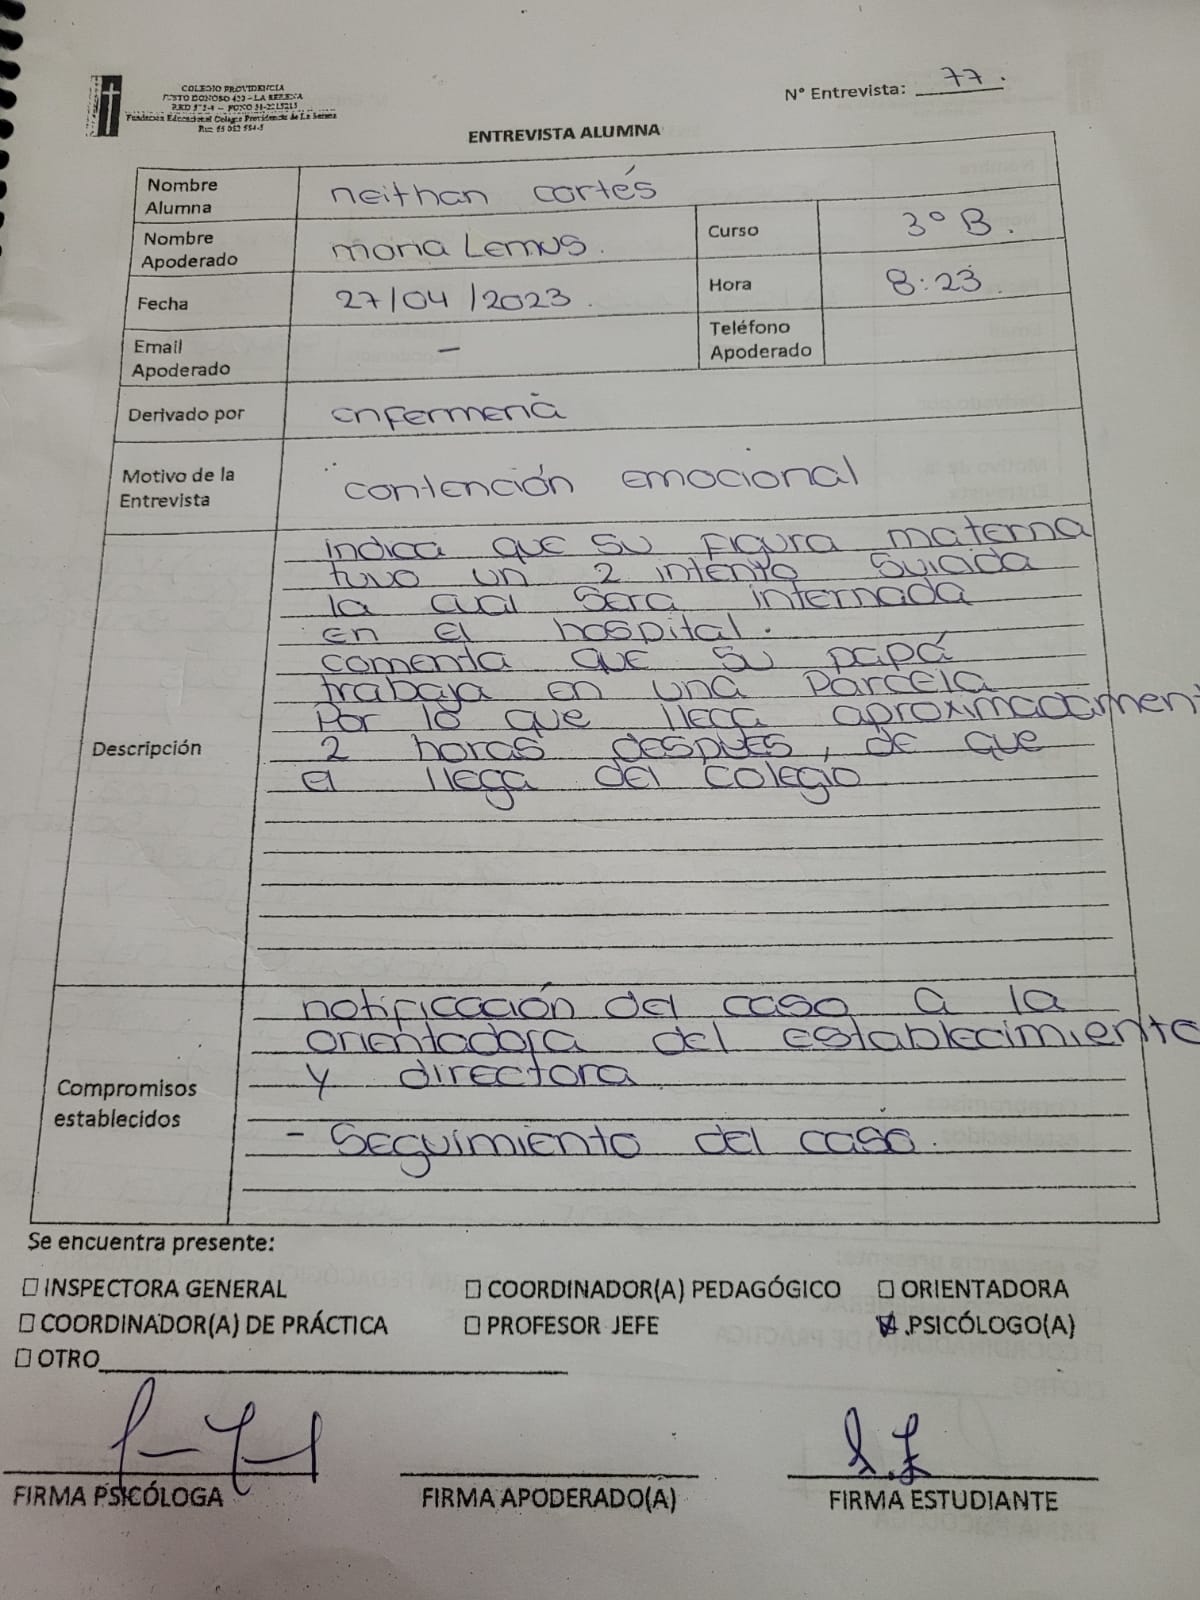 COLEGIO PROVIDENCIA
JUSTO DONOSO 420 - LA SERENA
Fundación Educacional Colegio Providencia de La Serena
N° Entrevista: 77.
ENTREVISTA ALUMNA
Nombre Alumna neithan cortés
Nombre Apoderado maria Lemus. Curso 3° B.
Fecha 27/04/2023. Hora 8:23.
Email Apoderado - Teléfono Apoderado
Derivado por enfermeria
Motivo de la Entrevista contención emocional
Descripción
indica que su figura materna
tuvo un 2 intento suicida
la cual sera internada
en el hospital.
comenta que su papá
trabaja en una Parcela
Por lo que llega aproximadamen
2 horas despues, de que
el llega del colegio
Compromisos establecidos
notificación del caso a la
orientadora del establecimiento
y directora
- Seguimiento del caso.
Se encuentra presente:
☐ INSPECTORA GENERAL ☐ COORDINADOR(A) PEDAGÓGICO ☐ ORIENTADORA
☐ COORDINADOR(A) DE PRÁCTICA ☐ PROFESOR JEFE ☑ .PSICÓLOGO(A)
☐ OTRO
FIRMA PSICÓLOGA FIRMA APODERADO(A) FIRMA ESTUDIANTE